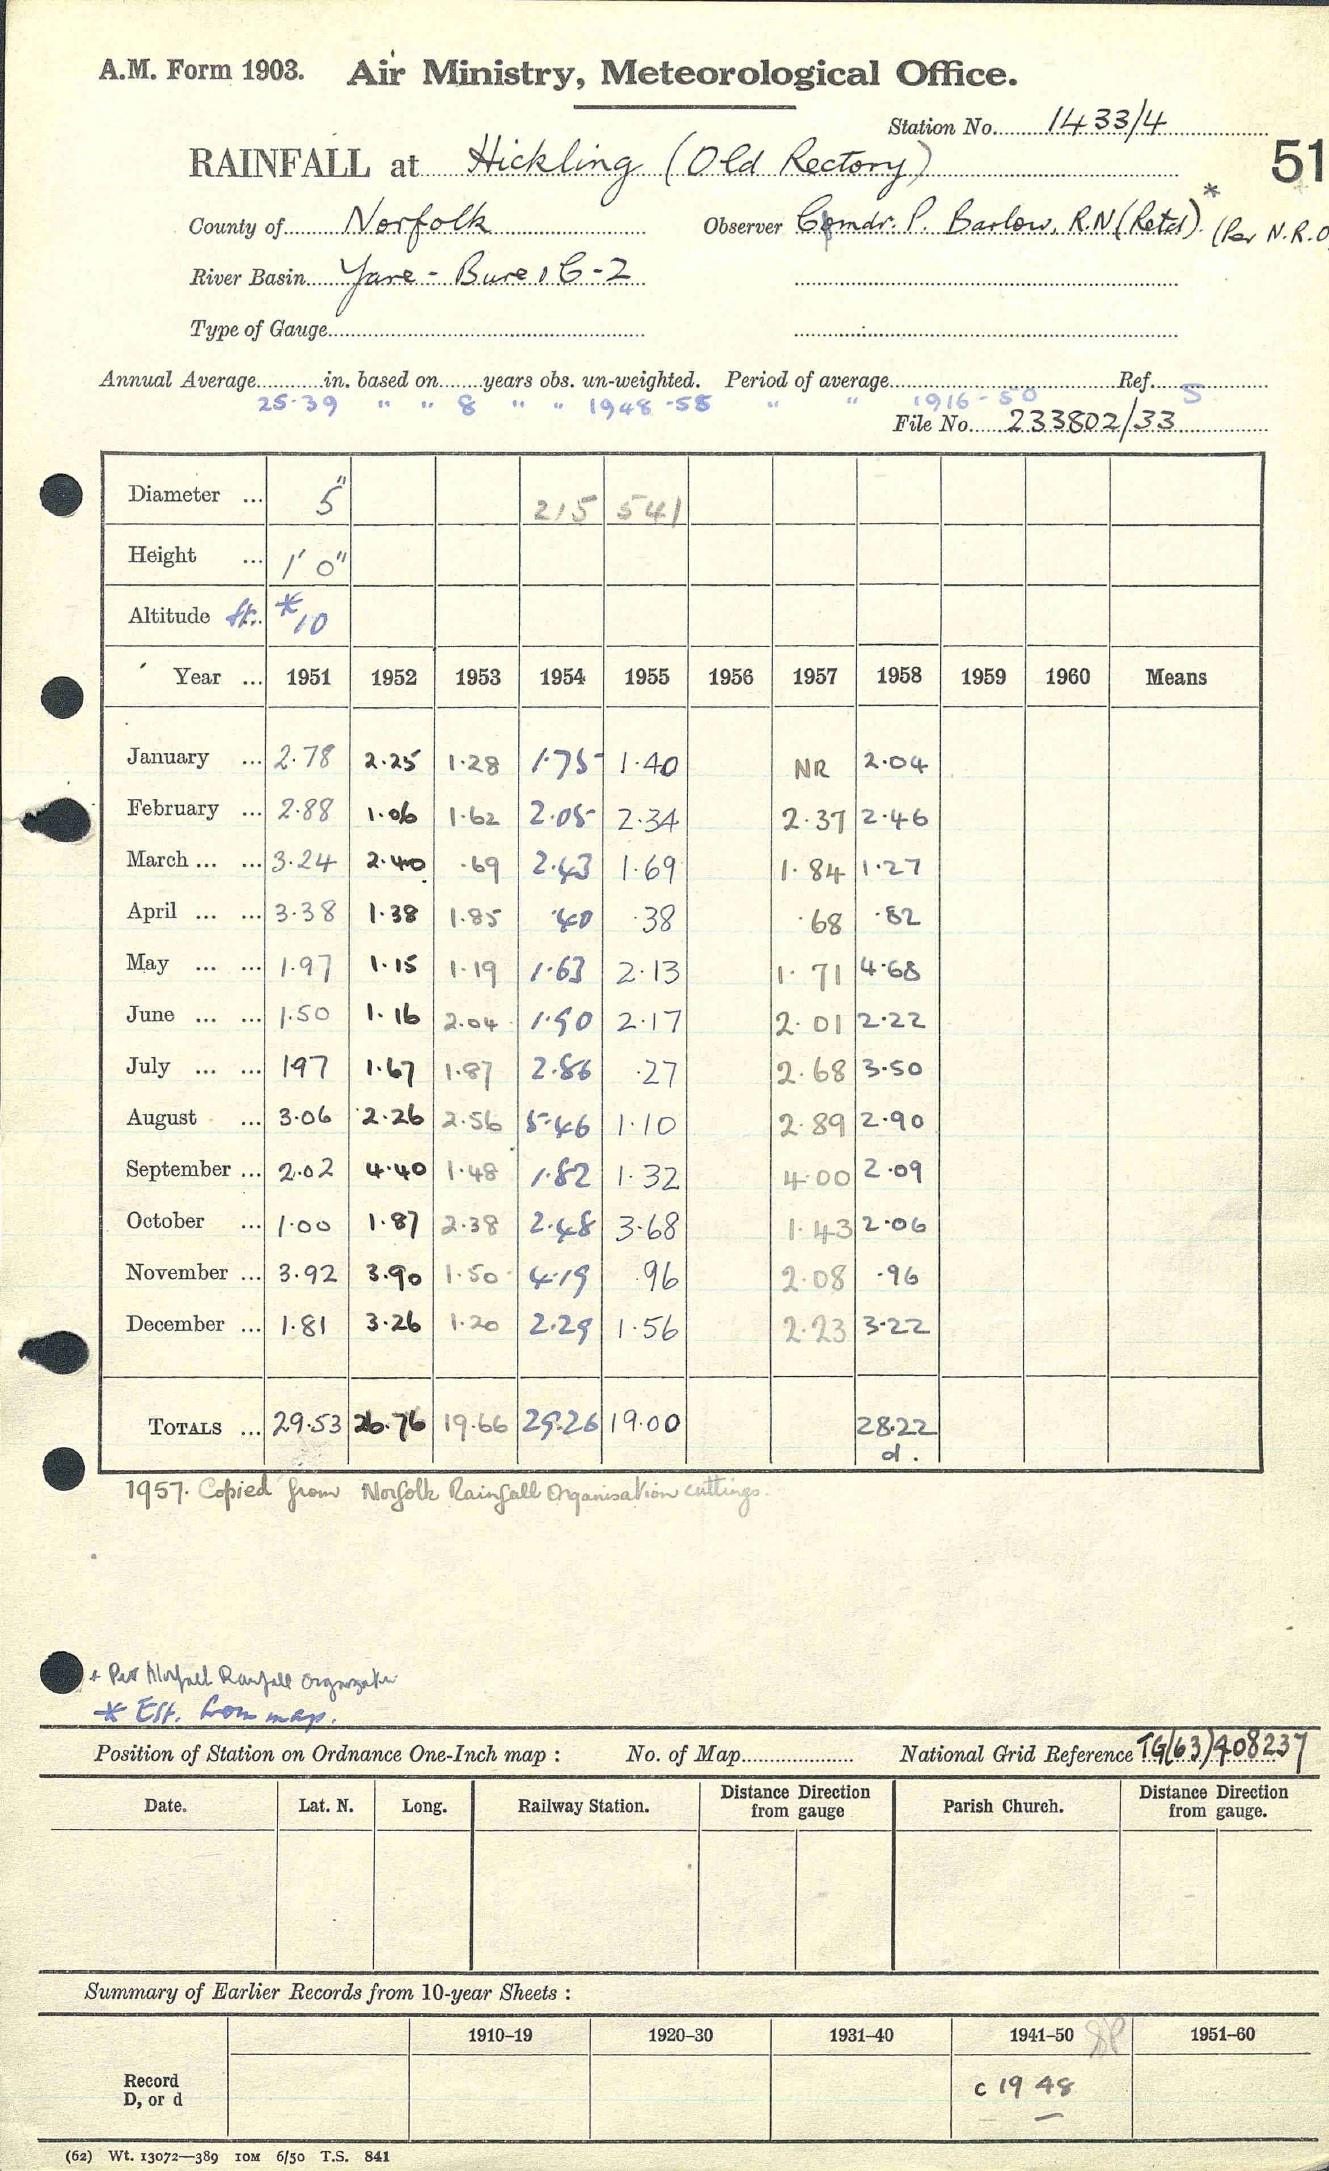 A.M. Form 1903. Air Ministry, Meteorological Office.
Station No. 1433/4
51
RAINFALL at Hickling (Old Rectory)
County of Norfolk Observer Comdr. P. Barlow, R.N (Retd). * (Per N.R.O
River Basin Yare - Bure, C-2
Type of Gauge
Annual Average in. based on years obs. un-weighted. Period of average Ref. S
25.39 " " 8 " " 1948-55 " " 1916-50
File No. 233802/33
Diameter ... 5" 215 541
Height ... 1' 0"
Altitude ft. * 10
Year ... 1951 1952 1953 1954 1955 1956 1957 1958 1959 1960 Means
January ... 2.78 2.25 1.28 1.75 1.40 NR 2.04
February ... 2.88 1.06 1.62 2.05 2.34 2.37 2.46
March ... ... 3.24 2.40 .69 2.43 1.69 1.84 1.27
April ... ... 3.38 1.38 1.85 .40 .38 .68 .82
May ... ... 1.97 1.15 1.19 1.63 2.13 1.71 4.68
June ... ... 1.50 1.16 2.04 1.90 2.17 2.01 2.22
July ... ... 197 1.67 1.87 2.86 .27 2.68 3.50
August ... 3.06 2.26 2.56 5.46 1.10 2.89 2.90
September ... 2.02 4.40 1.48 1.82 1.32 4.00 2.09
October ... 1.00 1.87 2.38 2.48 3.68 1.43 2.06
November ... 3.92 3.90 1.50 4.19 .96 2.08 .96
December ... 1.81 3.26 1.20 2.29 1.56 2.23 3.22
TOTALS ... 29.53 26.76 19.66 29.26 19.00 28.22
d.
1957. Copied from Norfolk Rainfall Organisation cuttings.
+ Per Norfolk Rainfall Organization
* Est. from map.
Position of Station on Ordnance One-Inch map : No. of Map National Grid Reference TG(63)408237
Date. Lat. N. Long. Railway Station. Distance Direction from gauge Parish Church. Distance Direction from gauge.
Summary of Earlier Records from 10-year Sheets :
1910–19 1920–30 1931–40 1941–50 1951–60
Record
D, or d c 1948
(62) Wt. 13072—389 IOM 6/50 T.S. 841